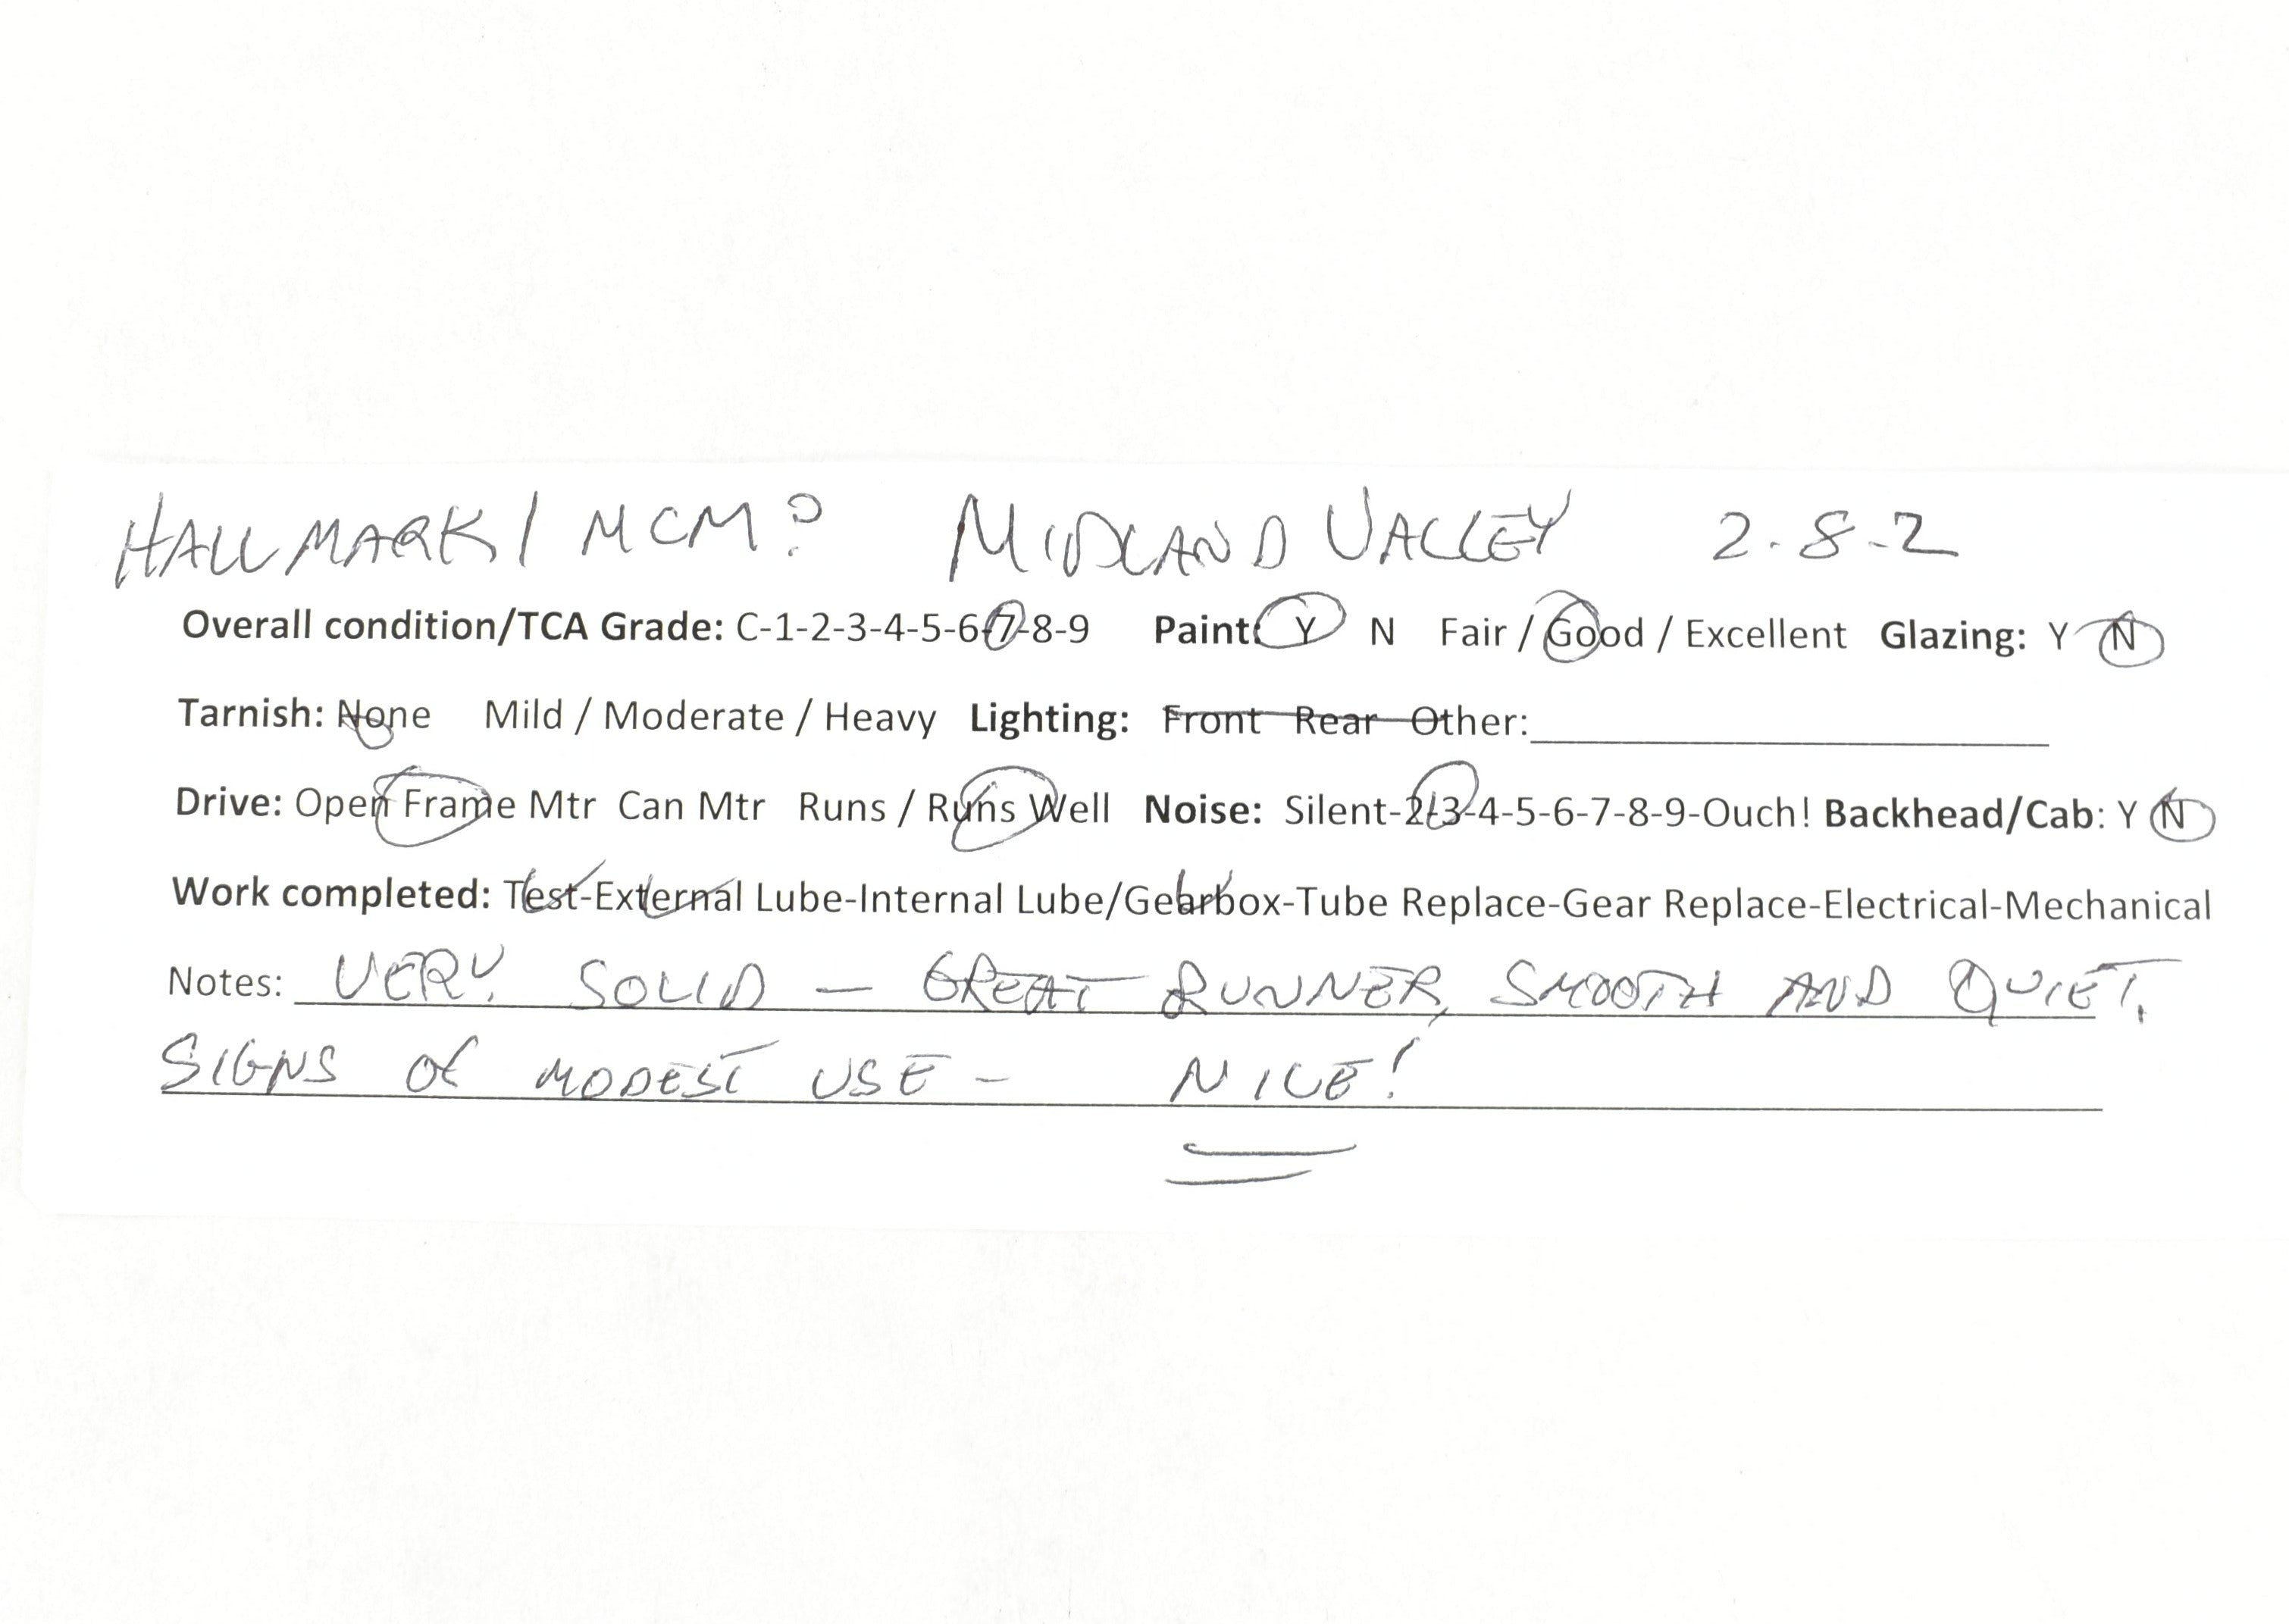 HALLMARK / MCM? MIDLAND VALLEY 2-8-2
Overall condition/TCA Grade: C-1-2-3-4-5-6-7-8-9 Paint: Y N Fair / Good / Excellent Glazing: Y N
Tarnish: None Mild / Moderate / Heavy Lighting: Front Rear Other:
Drive: Open Frame Mtr Can Mtr Runs / Runs Well Noise: Silent-2-3-4-5-6-7-8-9-Ouch! Backhead/Cab: Y N
Work completed: Test-External Lube-Internal Lube/Gearbox-Tube Replace-Gear Replace-Electrical-Mechanical
Notes: VERY SOLID — GREAT RUNNER, SMOOTH AND QUIET,
SIGNS OF MODEST USE - NICE!